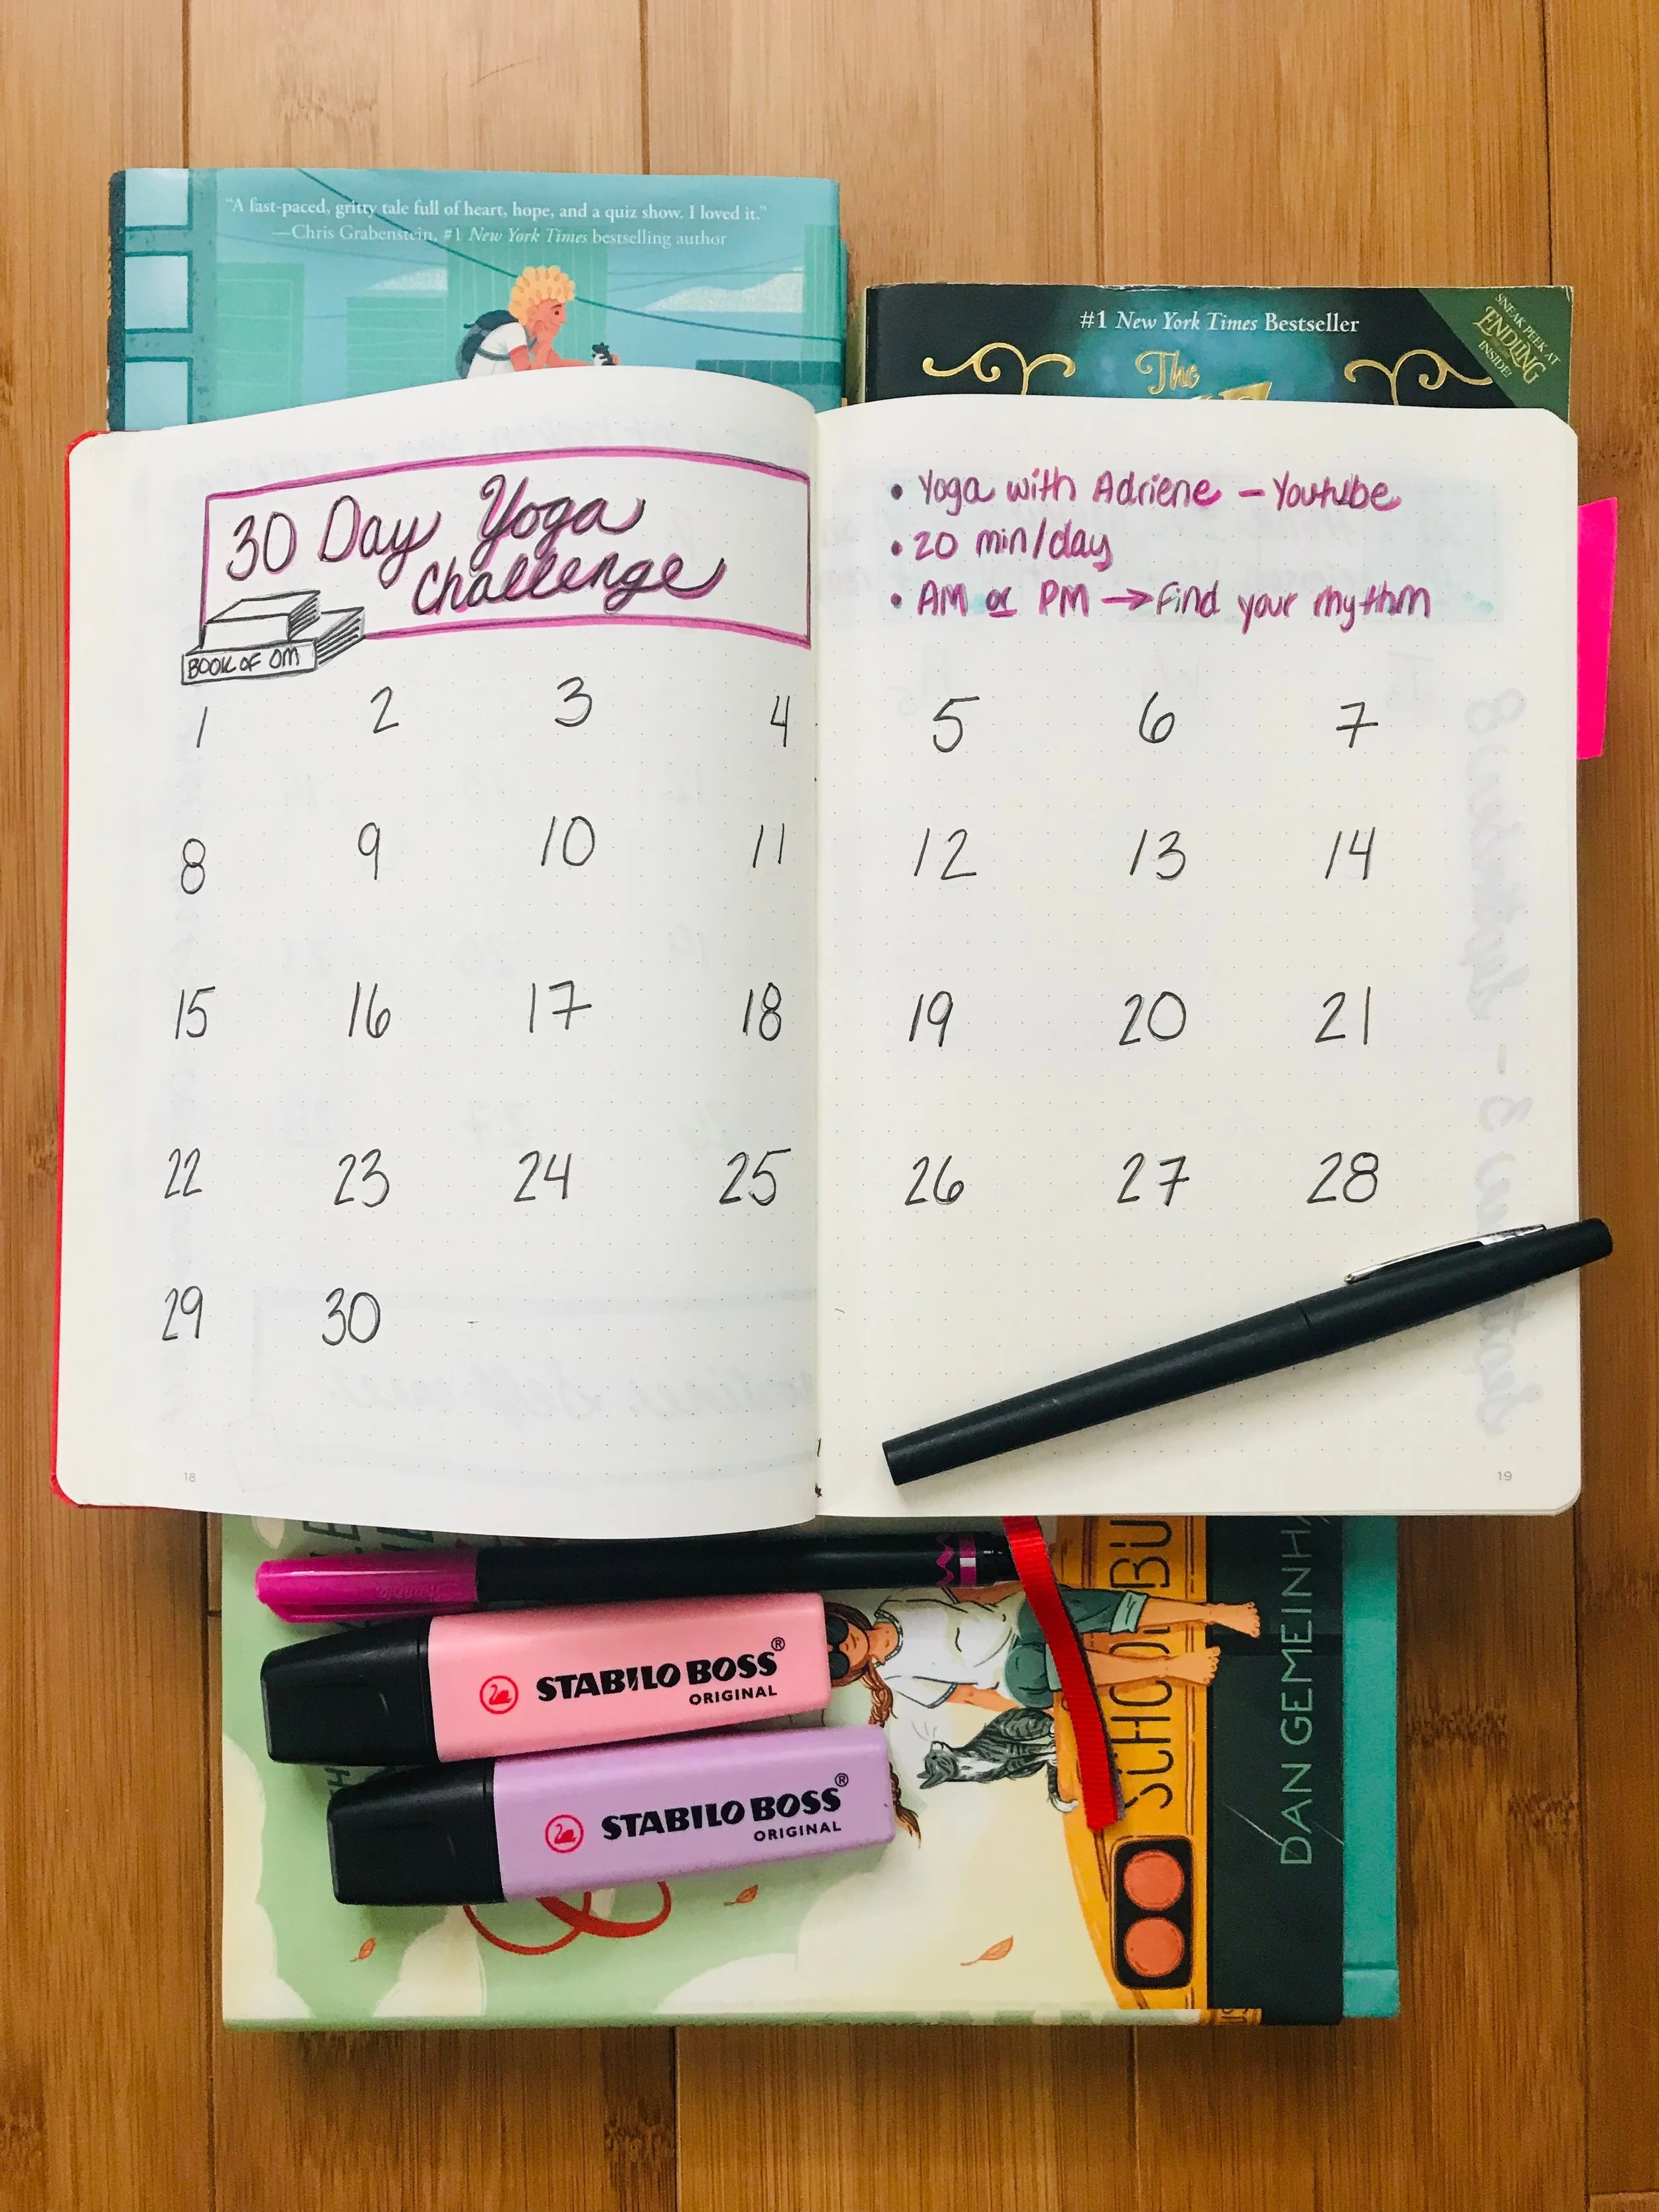 “A fast-paced, gritty tale full of heart, hope, and a quiz show. I loved it.”
—Chris Grabenstein, #1 New York Times bestselling author
#1 New York Times Bestseller
SNEAK PEEK AT
ENDLING
INSIDE!
The
30 Day Yoga
Challenge
BOOK OF OM
• Yoga with Adriene - Youtube
• 20 min/day
• AM or PM → Find your rhythm
1 2 3 4 5 6 7
8 9 10 11 12 13 14
15 16 17 18 19 20 21
22 23 24 25 26 27 28
29 30
18
19
STABILO BOSS®
ORIGINAL
STABILO BOSS®
ORIGINAL
SCHOOL BU
DAN GEMEINH